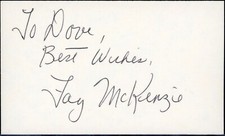 To Dove,
Best Wishes,
Fay McKenzie